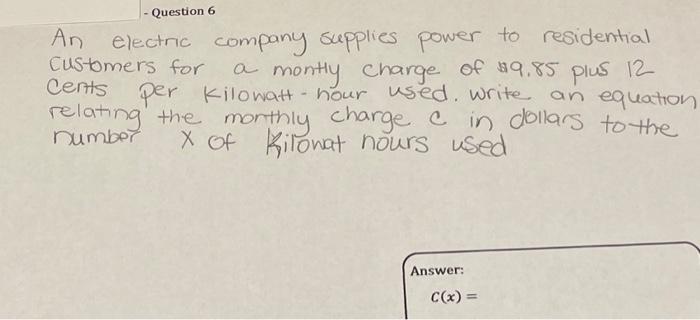 - Question 6
An electric company supplies power to residential
customers for a montly charge of $9.85 plus 12
cents per kilowatt-hour used. Write an equation
relating the monthly charge C in dollars to the
number X of Kilowat hours used
Answer:
C(x) =